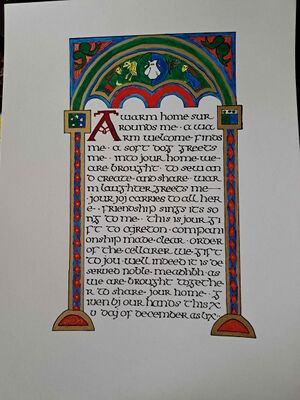 A warm home sur
rounds me · a wa
rm welcome finds
me · a soft dog greets
me · into your home we
are brought · to sew an
d create · and share · war
m laughter greets me —
your joy carries to all her
e · friendship sings its so
ng to me · this is your gi
ft to aireton · compani
onship made clear · order
of the cellarer we gift
to you · well indeed it is de
served noble · meadhbh · as
we are brought togethe
r to share · your home · g
iven by our hands this x
v day of december as lix ·